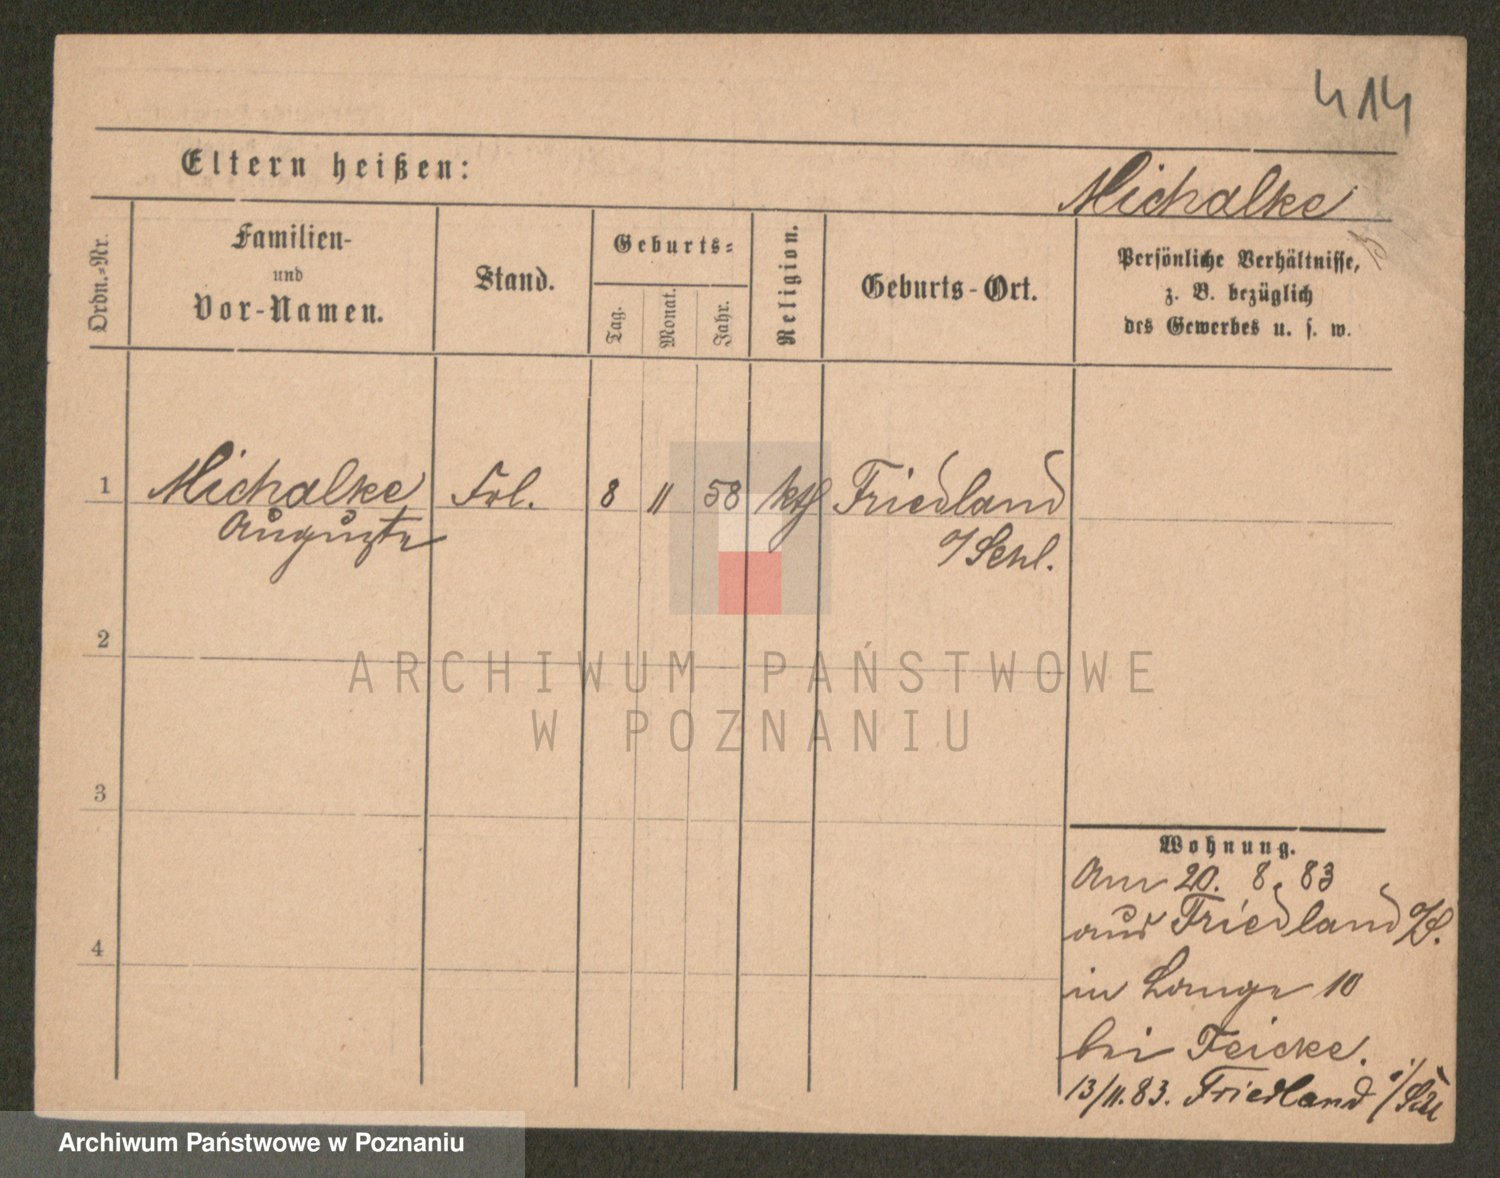 414
Eltern heißen:
Michalke
Ordn.-Nr.
Familien-
und
Vor-Namen.
Stand.
Geburts-
Tag.
Monat.
Jahr.
Religion.
Geburts-Ort.
Persönliche Verhältnisse,
z. B. bezüglich
des Gewerbes u. s. w.
1 Michalke Frl. 8 11 58 kth Friedland
Auguste o/Schl.
2
ARCHIWUM PAŃSTWOWE
W POZNANIU
3
Wohnung.
Am 20. 8. 83
aus Friedland o/S.
4
in Lange 10
bei Feicke.
13/11. 83. Friedland
Archiwum Państwowe w Poznaniu